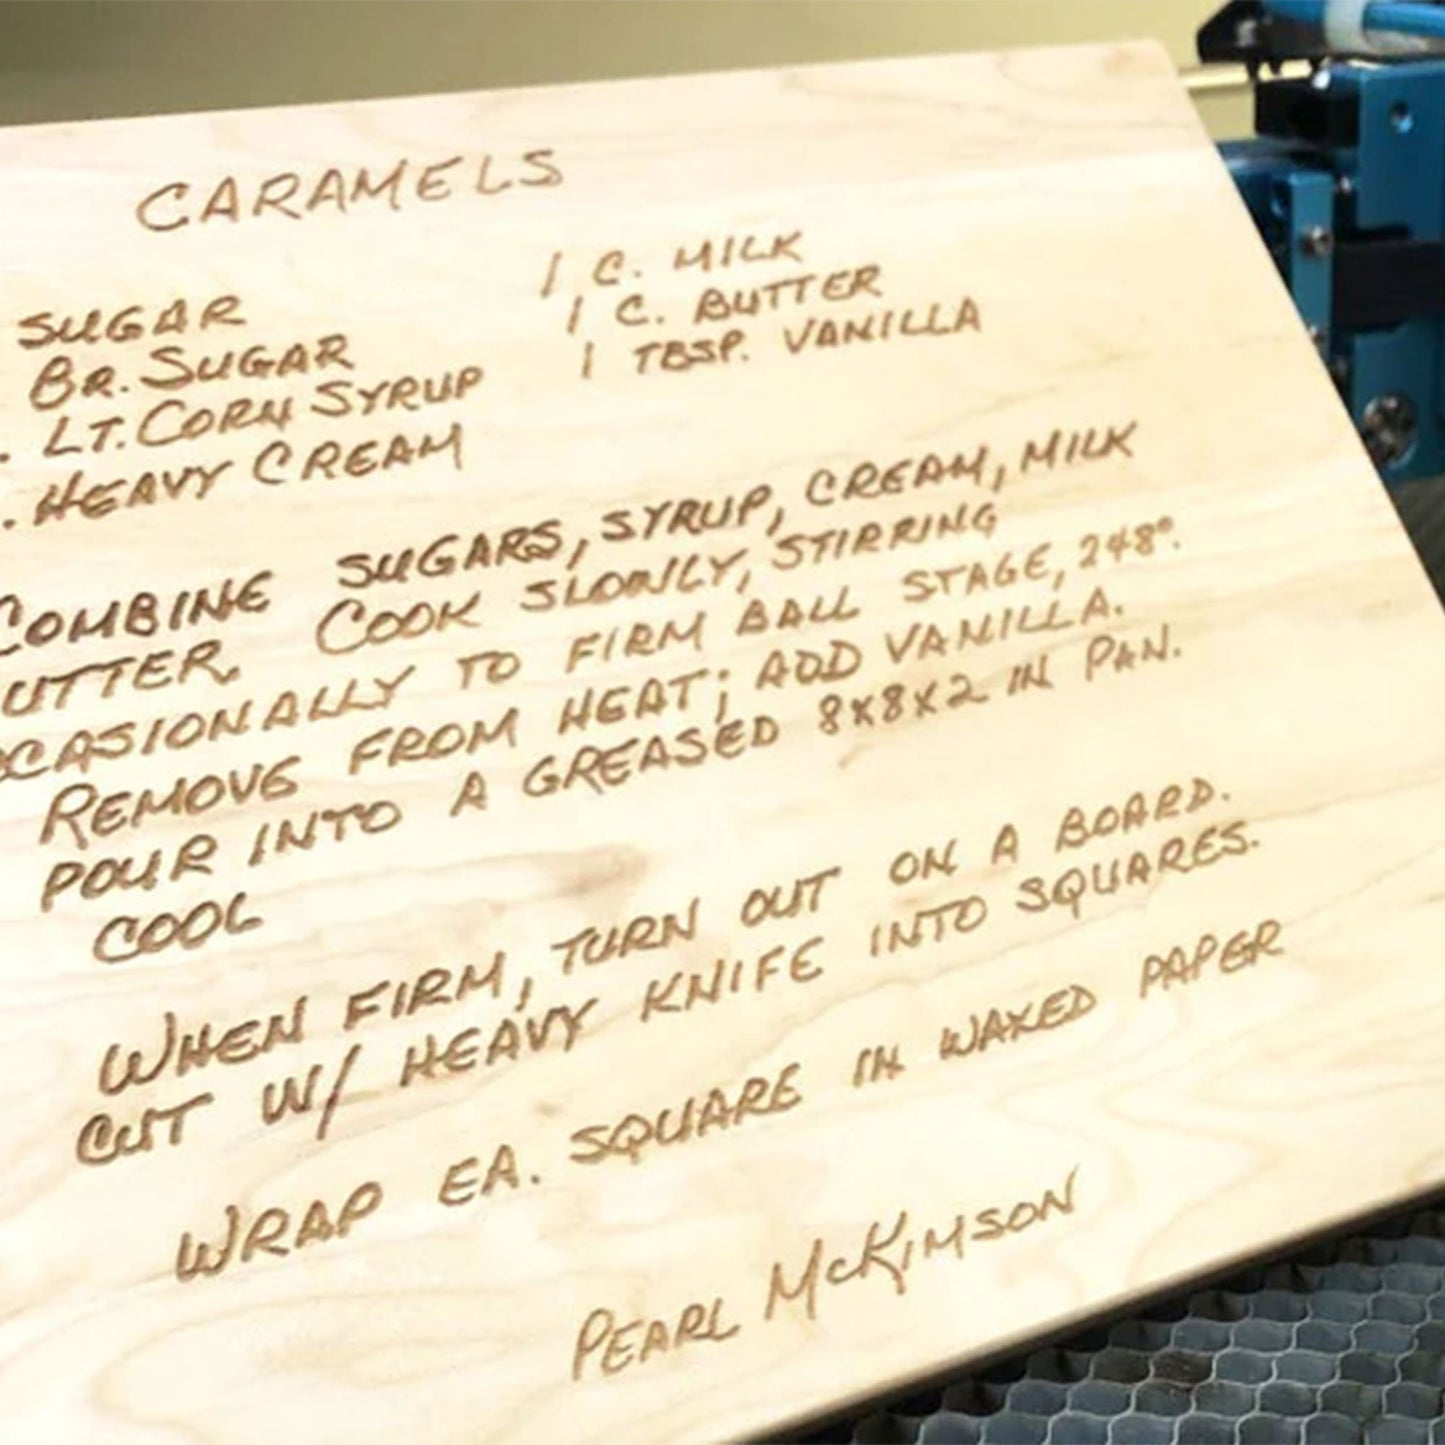 CARAMELS
SUGAR 1 C. MILK
BR. SUGAR 1 C. BUTTER
. LT. CORN SYRUP 1 TBSP. VANILLA
. HEAVY CREAM
COMBINE SUGARS, SYRUP, CREAM, MILK
UTTER. COOK SLOWLY, STIRRING
CCASIONALLY TO FIRM BALL STAGE, 248°.
REMOVE FROM HEAT; ADD VANILLA.
POUR INTO A GREASED 8X8X2 IN PAN.
COOL
WHEN FIRM, TURN OUT ON A BOARD.
CUT W/ HEAVY KNIFE INTO SQUARES.
WRAP EA. SQUARE IN WAXED PAPER
PEARL McKIMSON